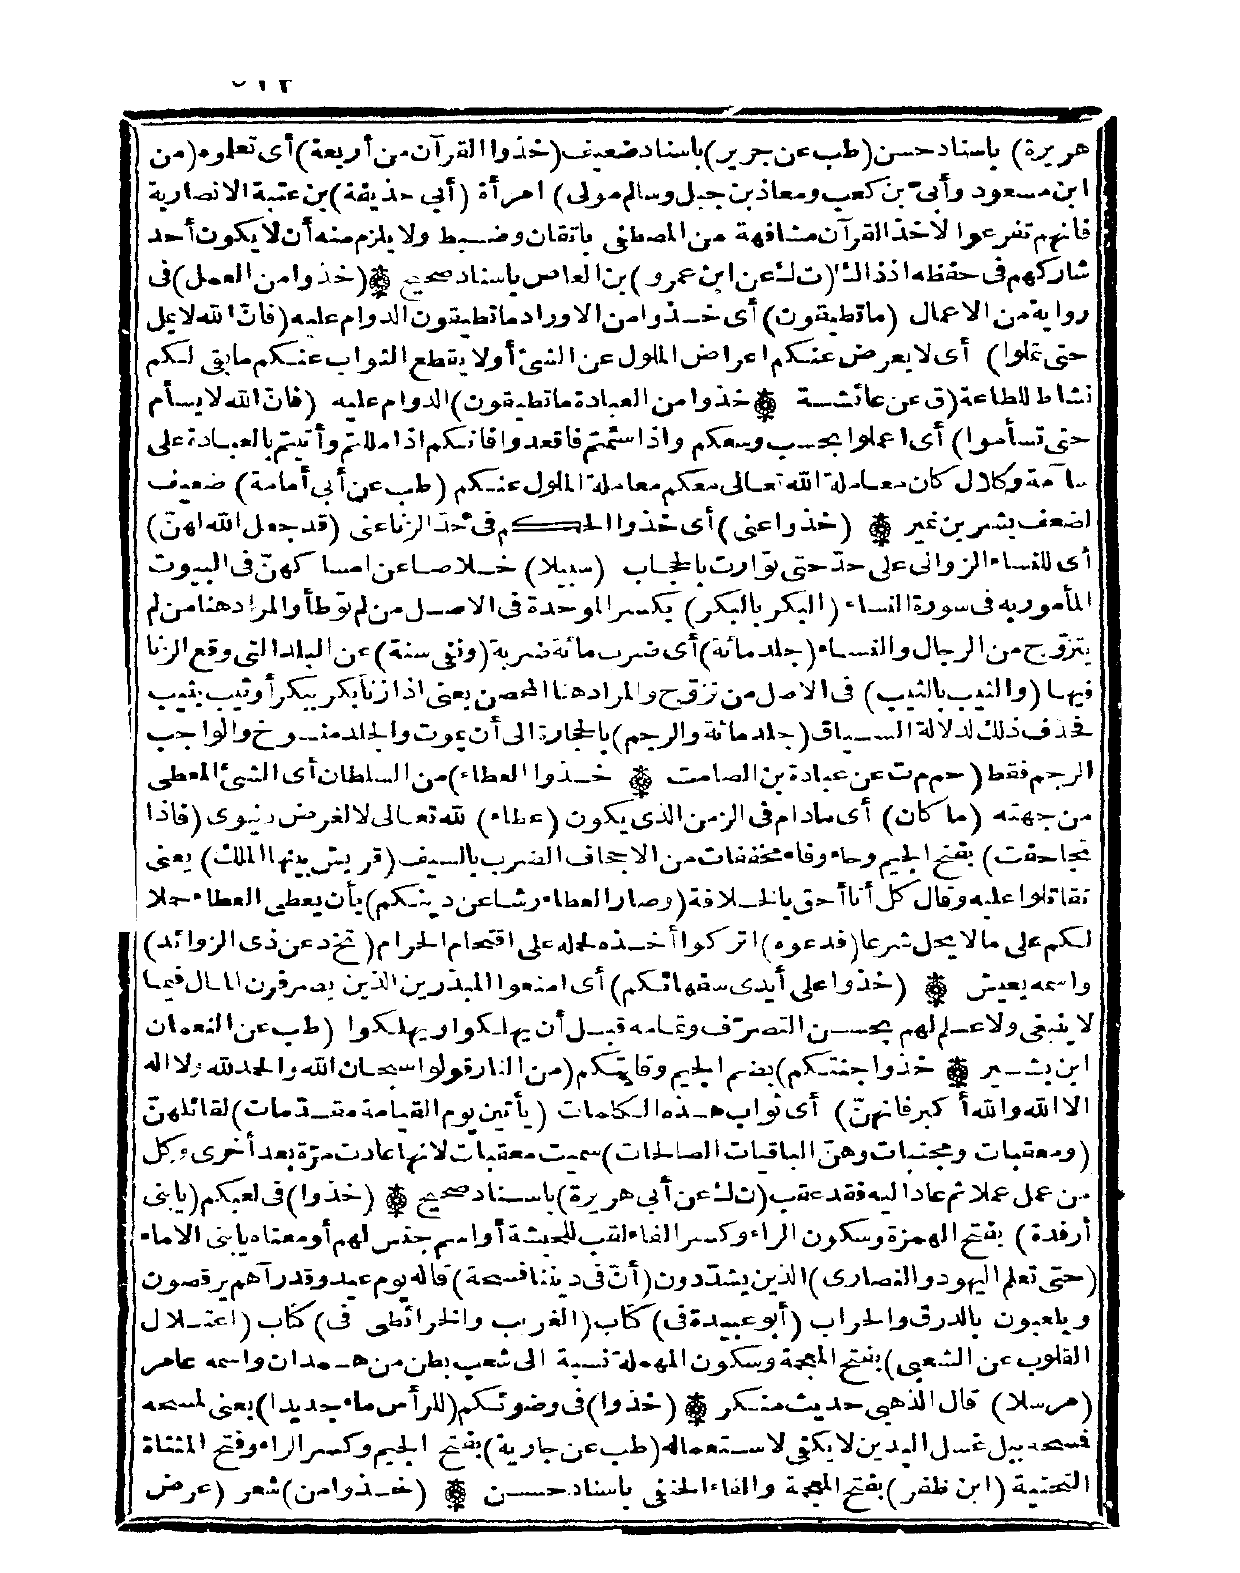 هريرة) باسناد حسن (طب عن جرير) باسناد ضعيف (خذوا القرآن من أربعة) أى تعلموه (من
ابن مسعود وأبىّ بن كعب ومعاذ بن جبل وسالم مولى) امرأة (أبى حذيفة) بن عتبة الانصارية
فانهم تفرغوا لاخذ القرآن مشافهة من المصطفى باتقان وضبط ولا يلزم منه أن لا يكون أحد
شاركهم فى حفظه اذ ذاك (ت ك عن ابن عمرو) بن العاص باسناد صحيح (خذوا من العمل) فى
رواية من الاعمال (ما تطيقون) أى خذوا من الاوراد ما تطيقون الدوام عليه (فانّ الله لا يمل
حتى تملوا) أى لا يعرض عنكم اعراض الملول عن الشئ أو لا يقطع الثواب عنكم ما بقى لكم
نشاط للطاعة (ق عن عائشة خذوا من العبادة ما تطيقون) الدوام عليه (فانّ الله لا يسأم
حتى تسأموا) أى اعملوا بحسب وسعكم واذا سئمتم فاقعدوا فانكم اذا مللتم وأتيتم بالعبادة على
سآمة وكلال كان معاملة الله تعالى معكم معاملة الملول عنكم (طب عن أبى أمامة) ضعيف
لضعف بشر بن نمير (خذوا عنى) أى خذوا الحكم فى حدّ الزنا عنى (قد جعل الله لهنّ)
أى للنساء الزوانى على حدّ حتى توارت بالحجاب (سبيلا) خلاصا عن امساكهنّ فى البيوت
المأمور به فى سورة النساء (البكر بالبكر) بكسر الموحدة فى الاصل من لم توطأ والمراد هنا من لم
يتزوّج من الرجال والنساء (جلد مائة) أى ضرب مائة ضربة (ونفى سنة) عن البلد التى وقع الزنا
فيها (والثيب بالثيب) فى الاصل من تزوّج والمراد هنا المحصن يعنى اذا زنا بكر ببكر أو ثيب بثيب
فحذف ذلك لدلالة السياق (جلد مائة والرجم) بالحجارة الى أن يموت والجلد منسوخ والواجب
الرجم فقط (حم م ت عن عبادة بن الصامت خذوا العطاء) من السلطان أى الشئ المعطى
من جهته (ما كان) أى ما دام فى الزمن الذى يكون (عطاء) لله تعالى لا لغرض دنيوى (فاذا
تجاحفت) بفتح الجيم وحاء وفاء مخففات من الاجحاف الضرب بالسيف (قريش بينها الملك) يعنى
تقاتلوا عليه وقال كل أنا أحق بالخلافة (وصار العطاء رشا عن دينكم) بأن يعطى العطاء حملا
لكم على ما لا يحل شرعا (فدعوه) اتركوا أخذه لحمله على اقتحام الحرام (تخ د عن ذى الزوائد)
واسمه يعيش (خذوا على أيدى سفهائكم) أى امنعوا المبذرين الذين يصرفون المال فيما
لا ينبغى ولا علم لهم بحسن التصرّف وتمامه قبل أن يهلكوا ويهلكوا (طب عن النعمان
ابن بشير خذوا جنتكم) بضم الجيم وقايتكم (من النار قولوا سبحان الله والحمد لله ولا اله
الا الله والله أكبر فانهنّ) أى ثواب هذه الكلمات (يأتين يوم القيامة مقدّمات) لقائلهنّ
(ومعقبات ومجنبات وهنّ الباقيات الصالحات) سميت معقبات لانها عادت مرّة بعد أخرى وكل
من عمل عملا ثم عاد اليه فقد عقب (ن ك عن أبى هريرة) باسناد صحيح (خذوا) فى لعبكم (يا بنى
أرفدة) بفتح الهمزة وسكون الراء وكسر الفاء لقب للحبشة أو اسم جنس لهم أو معناه يا بنى الاماء
(حتى تعلم اليهود والنصارى) الذين يشدّدون (أنّ فى ديننا فسحة) قاله يوم عيد وقد رآهم يرقصون
ويلعبون بالدرق والحراب (أبو عبيدة فى) كتاب (الغريب والخرائطى فى) كتاب (اعتلال
القلوب عن الشعبى) بفتح المعجمة وسكون المهملة نسبة الى شعب بطن من همدان واسمه عامر
(مرسلا) قال الذهبى حديث منكر (خذوا) فى وضوئكم (للرأس ماء جديدا) يعنى لمسحه
فمسحه ببلل غسل اليدين لا يكفى لاستعماله (طب عن جارية) بفتح الجيم وكسر الراء وفتح المثناة
التحتية (ابن ظفر) بفتح المعجمة والفاء الحنفى باسناد حسن (خذوا من) شعر (عرض